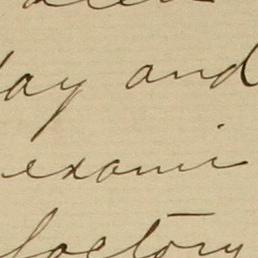 day and
exami
factory